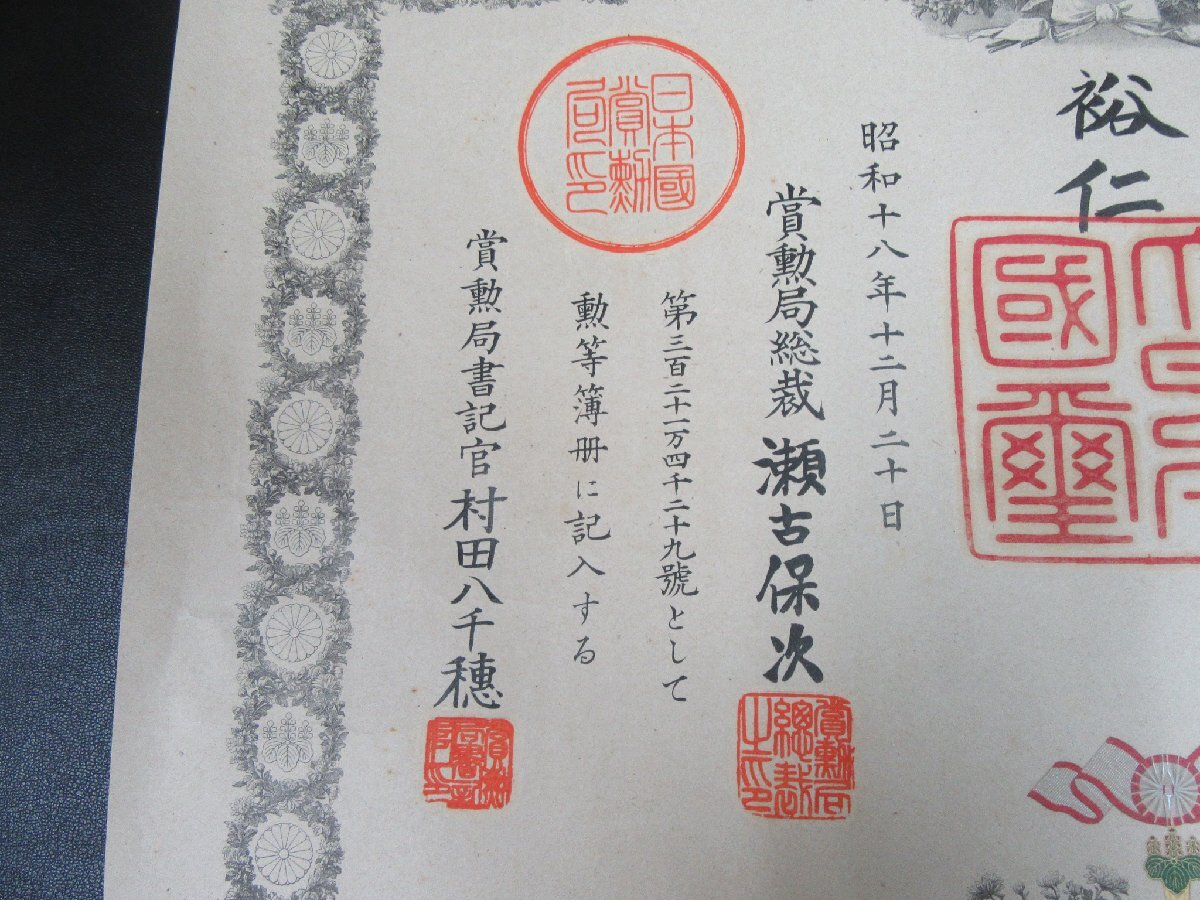 裕仁
大日本
國璽
昭和十八年十二月二十日
賞勲局総裁 瀬古保次
賞勲局総裁之印
第三百二十一万四千二十九號として
勲等簿册に記入する
日本國
賞勲
局印
賞勲局書記官 村田八千穗